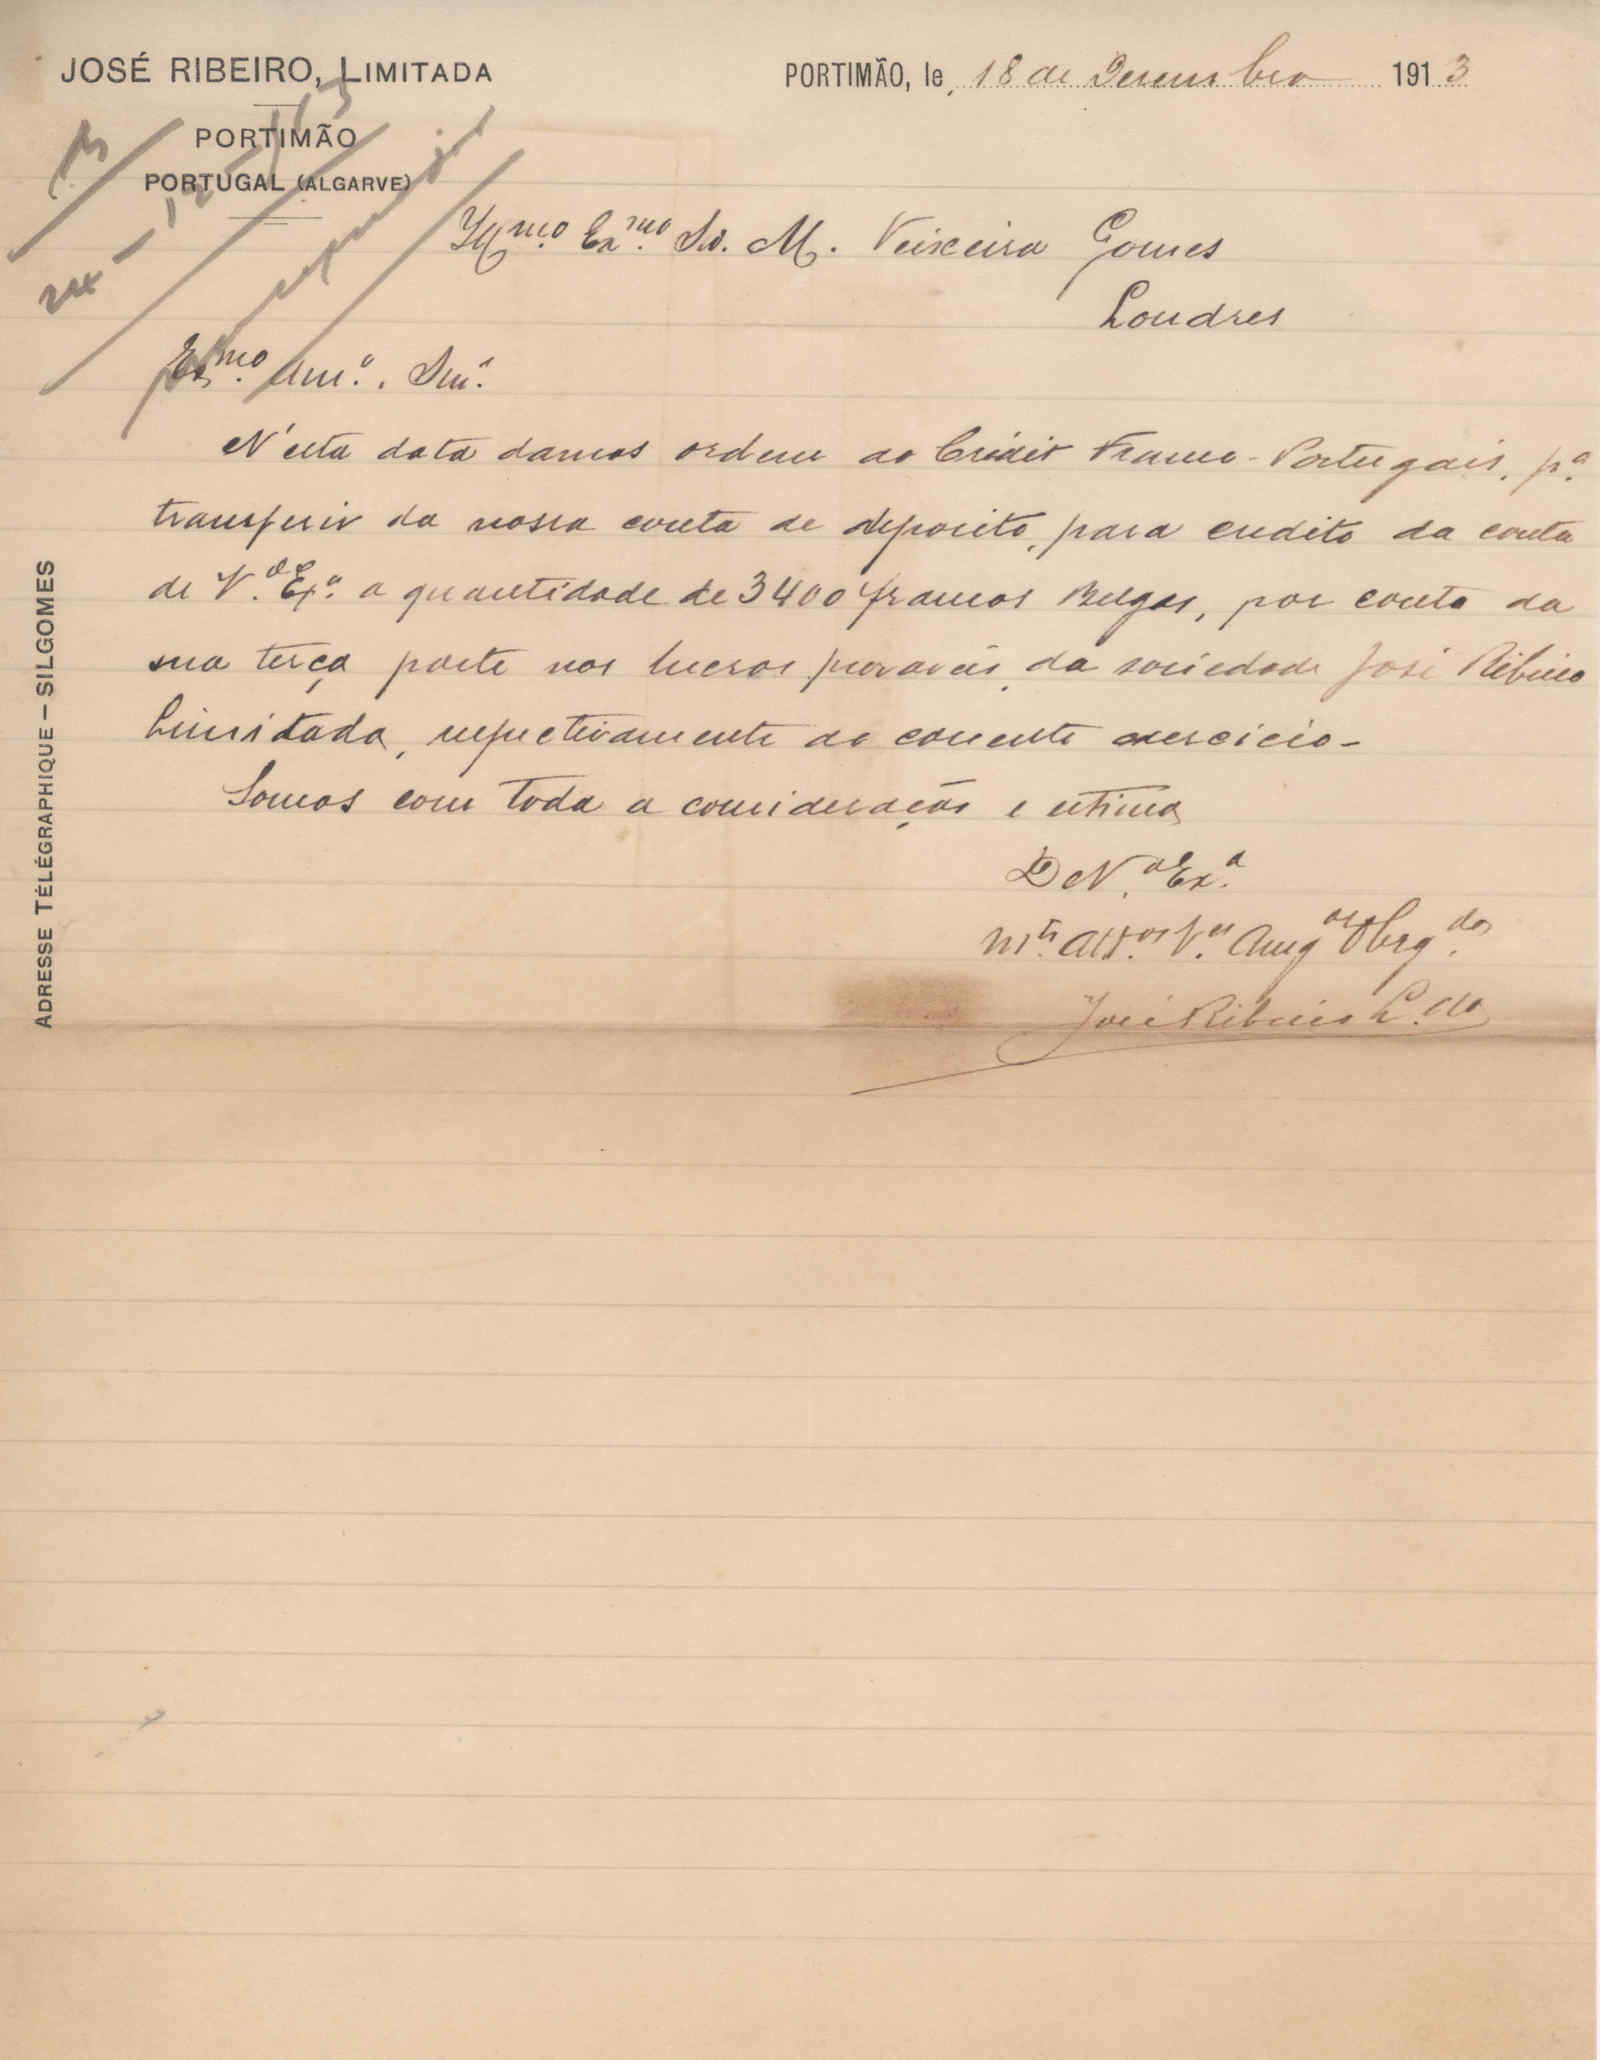 JOSÉ RIBEIRO, LIMITADA
PORTIMÃO
PORTUGAL (ALGARVE)
PORTIMÃO, le, 18 de Dezembro 1913
24-12-13
Illmo. Exmo. Sr. M. Teixeira Gomes
Londres
Exmo. Amº. Snr.
N'esta data damos ordem ao Crédit Franco-Portugais, pª.
transferir da nossa conta de deposito, para credito da conta
de V. Exª. a quantidade de 3400 francos Belgas, por conta da
sua terça parte nos lucros provaveis, da sociedade José Ribeiro
Limitada, respectivamente ao corrente exercicio-
Somos com toda a consideração e estima
De V. Exª.
Mto. Attos. Vres. Amgos Obrgdos.
José Ribeiro L.da
ADRESSE TÉLÉGRAPHIQUE – SILGOMES